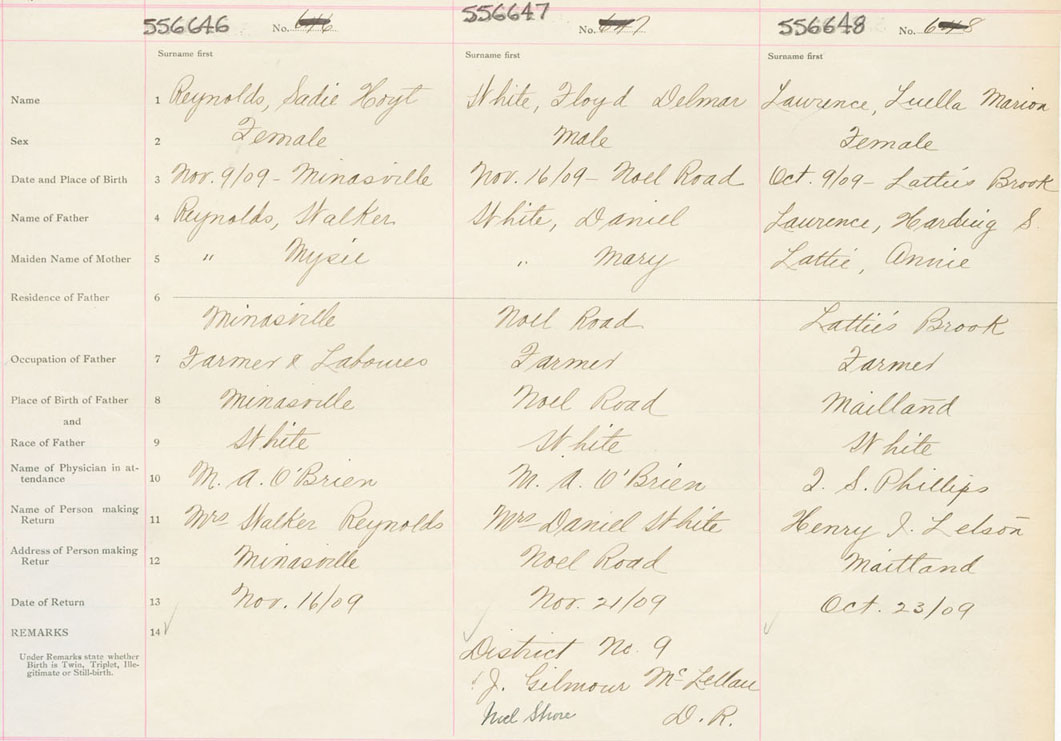 556646 No. 556647 No. 556648 No.
Surname first Surname first Surname first
Name 1 Reynolds, Sadie Hoyt White, Floyd Delmar Lawrence, Luella Marion
Sex 2 Female Male Female
Date and Place of Birth 3 Nov. 9/09 - Minasville Nov. 16/09 - Noel Road Oct. 9/09 - Lattie's Brook
Name of Father 4 Reynolds, Walker White, Daniel Lawrence, Harding S.
Maiden Name of Mother 5 " Mysie " Mary Lattie, Annie
Residence of Father 6
Minasville Noel Road Lattie's Brook
Occupation of Father 7 Farmer & Labourer Farmer Farmer
Place of Birth of Father 8 Minasville Noel Road Maitland
and
Race of Father 9 White White White
Name of Physician in at-
tendance 10 M. A. O'Brien M. A. O'Brien Phillips
Name of Person making
Return 11 Mrs Walker Reynolds Mrs Daniel White Henry
Address of Person making
Retur 12 Minasville Noel Road Maitland
Date of Return 13 Nov. 16/09 Nov. 21/09 Oct. 23/09
REMARKS 14
Under Remarks state whether
Birth is Twin, Triplet, Ille-
gitimate or Still-birth.
District No. 9
J. Gilmour McLellan
Noel Shore D. R.